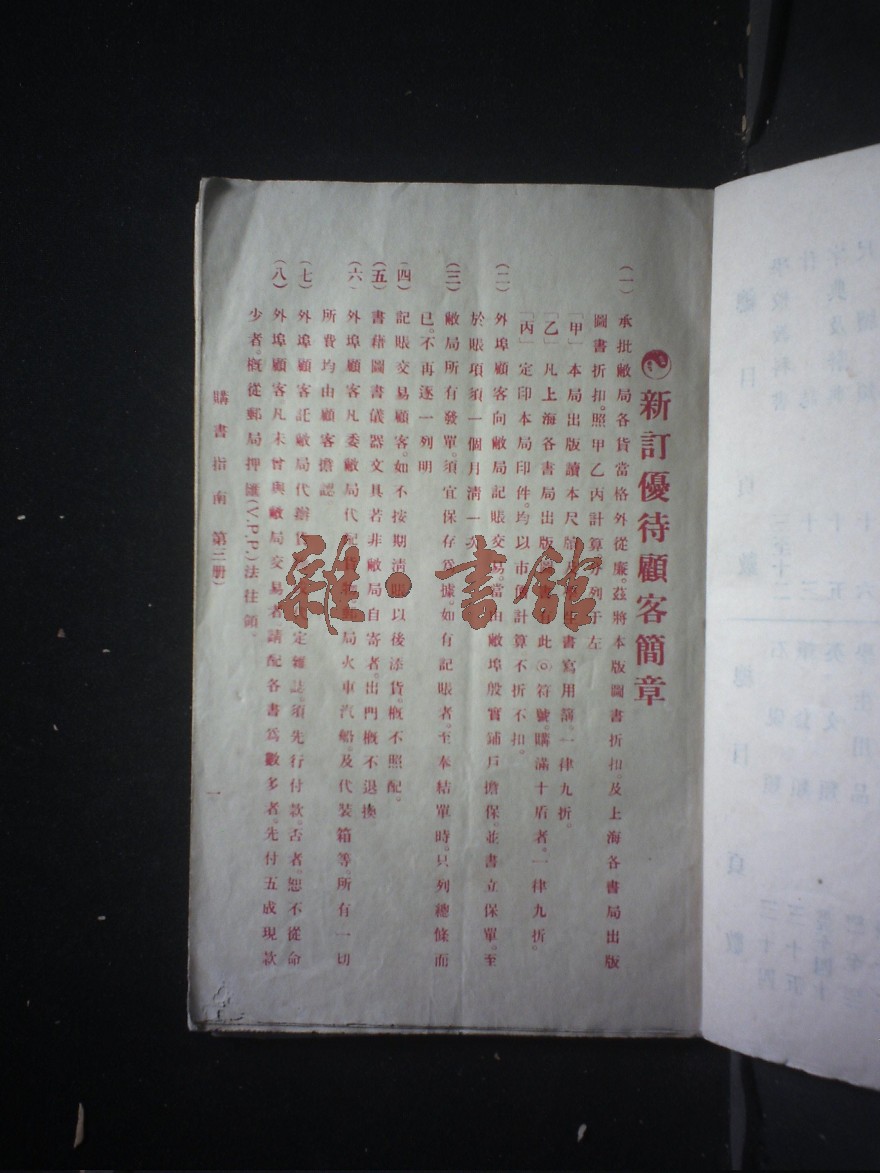 新訂優待顧客簡章
(一)承批敝局各貨當格外從廉。茲將本版圖書折扣。及上海各書局出版
圖書折扣。照甲乙丙計算分列于左
「甲」本局出版讀本尺牘及書寫用簿。一律九折。
「乙」凡上海各書局出版有此◎符號。購滿十盾者。一律九折。
「丙」定印本局印件。均以市價計算不折不扣。
(二)外埠顧客向敝局記賬交易。當由敝埠殷實鋪戶擔保。並書立保單。至
於賬項須一個月淸一次
(三)敝局所有發單。須宜保存爲據。如有記賬者。至奉結單時。只列總條而
已。不再逐一列明
(四)記賬交易顧客。如不按期淸賬以後添貨。槪不照配。
(五)書藉圖書儀器文具若非敝局自寄者。出門槪不退換。
(六)外埠顧客凡委敝局代配貨局火車汽船。及代装箱等。所有一切
所費均由顧客擔認
(七)外埠顧客託敝局代辦定雜誌。須先行付款。否者。恕不從命
(八)外埠顧客。凡未曾與敝局交易者請配各書爲數多者。先付五成現款
少者。槪從郵局押匯(V.P.P.)法往領。
購書指南 第三册)
一
雜·書館